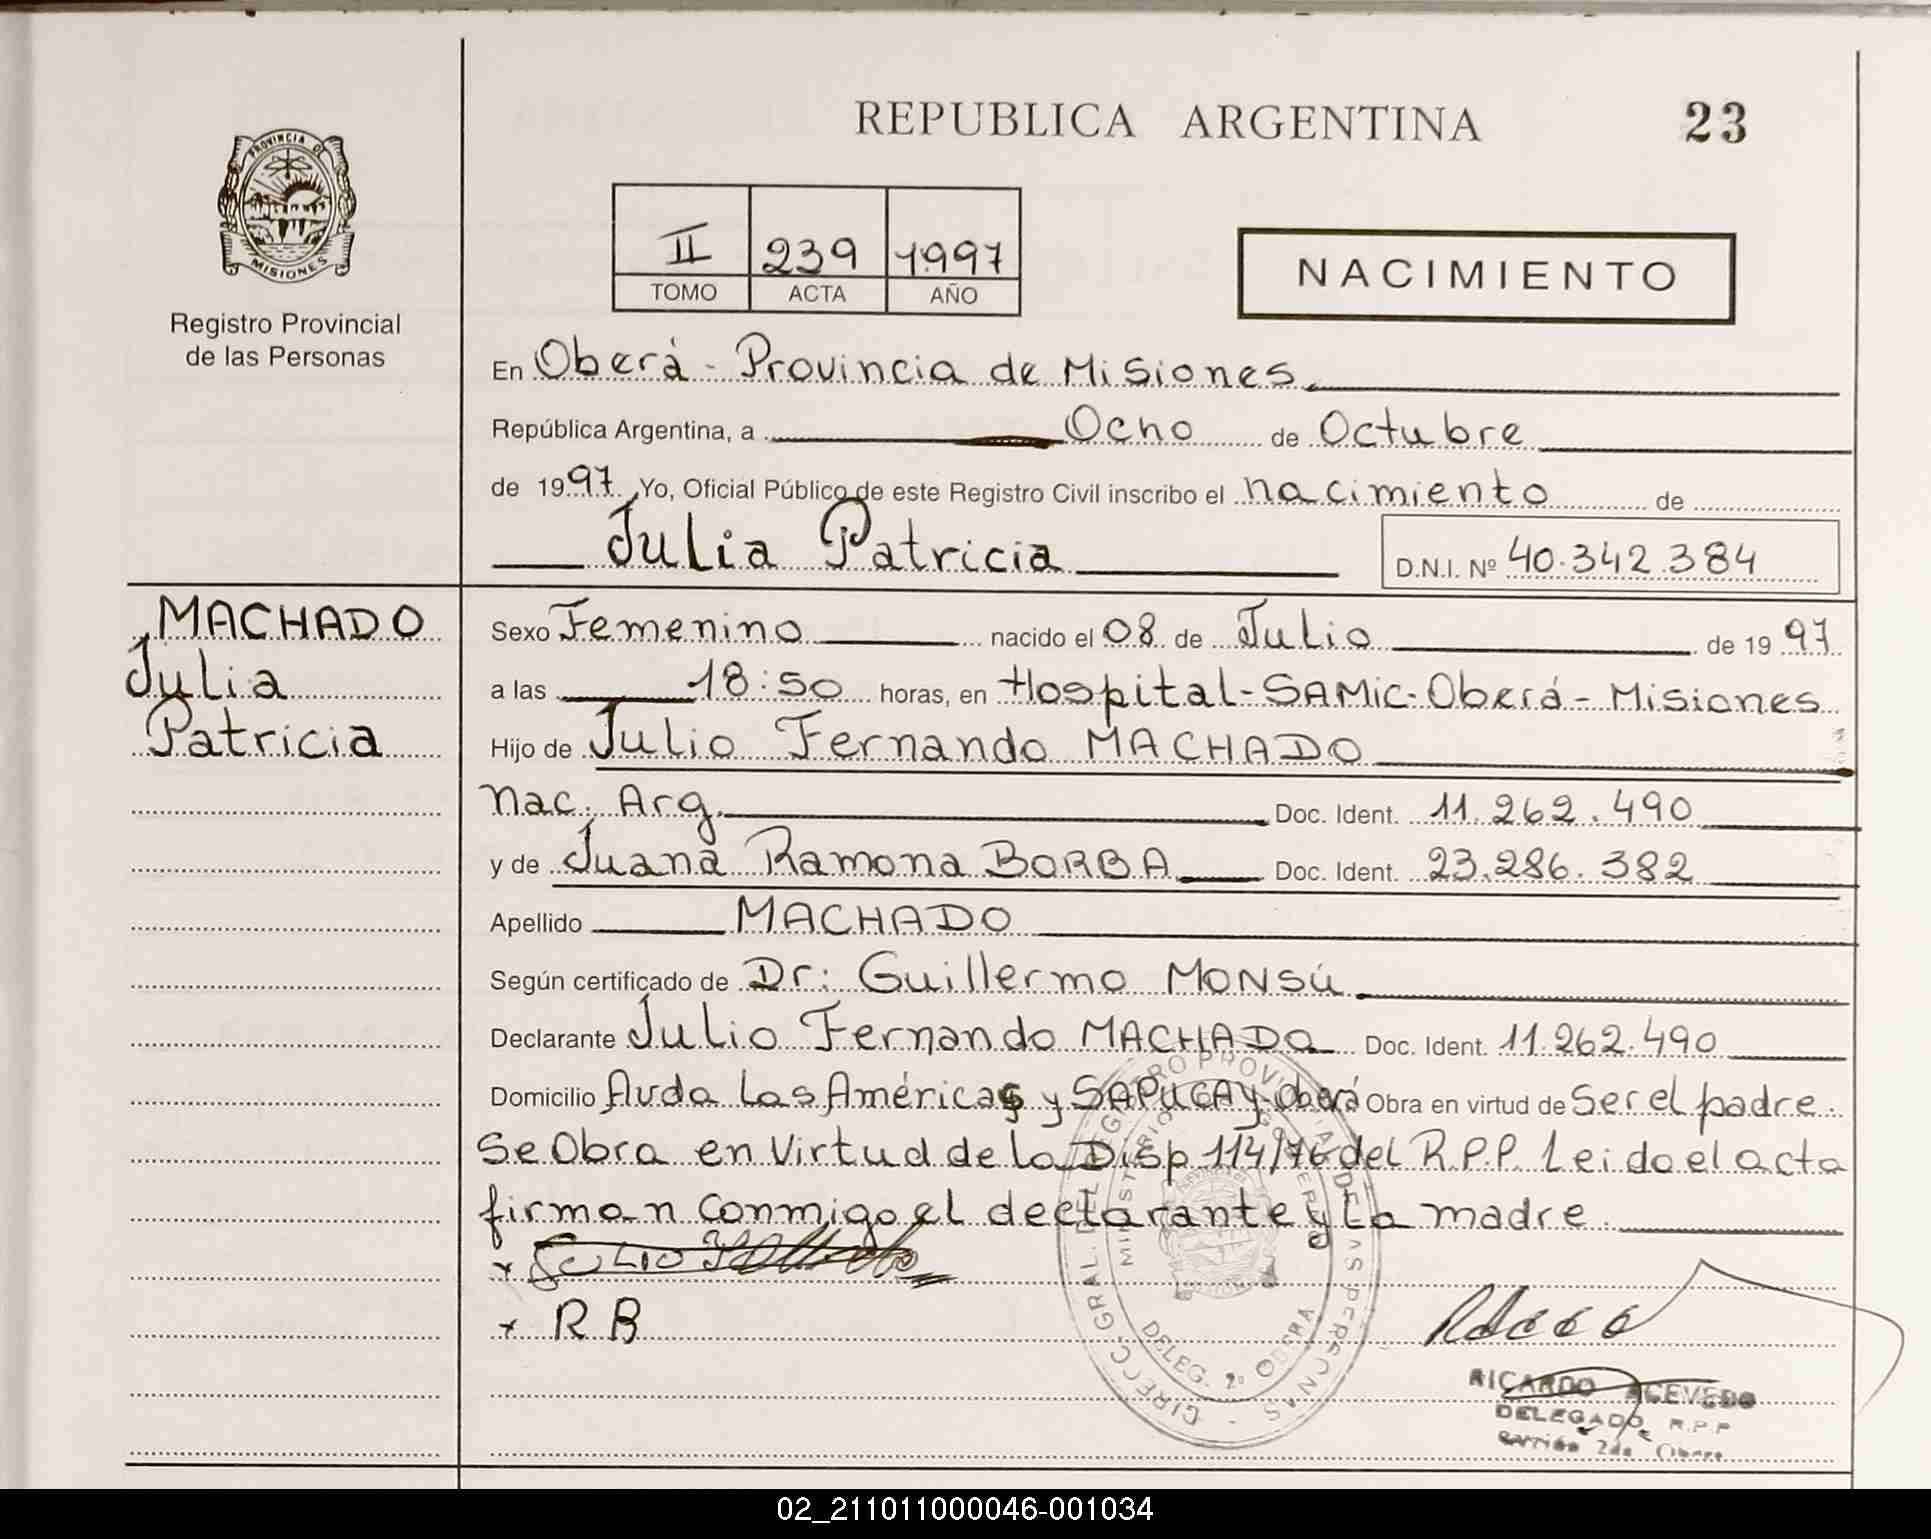 REPUBLICA ARGENTINA
23
PROVINCIA DE
MISIONES
Registro Provincial
de las Personas
II 239 1997
TOMO ACTA AÑO
NACIMIENTO
En Oberá - Provincia de Misiones.
República Argentina, a Ocho de Octubre
de 1997. Yo, Oficial Público de este Registro Civil inscribo el nacimiento de
Julia Patricia
D.N.I. Nº 40.342.384
MACHADO
Julia
Patricia
Sexo Femenino nacido el 08 de Julio de 1997
a las 18:50 horas, en Hospital-SAMIC-Oberá-Misiones
Hijo de Julio Fernando MACHADO
Nac. Arg. Doc. Ident. 11.262.490
y de Juana Ramona BORBA Doc. Ident. 23.286.382
Apellido MACHADO
Según certificado de Dr: Guillermo MONSÚ
Declarante Julio Fernando MACHADO Doc. Ident. 11.262.490
Domicilio Avda Las Américas y SAPUCAY-Oberá Obra en virtud de Ser el padre.
Se Obra en Virtud de la Disp 114/76 del R.P.P. Leida el acta
firman conmigo el declarante y la madre.
x Julio
x R B
MINISTERIO DE GOBIERNO
DELEG. 2º OBERA
RICARDO ACEVEDO
DELEGADO R.P.P
02_211011000046-001034